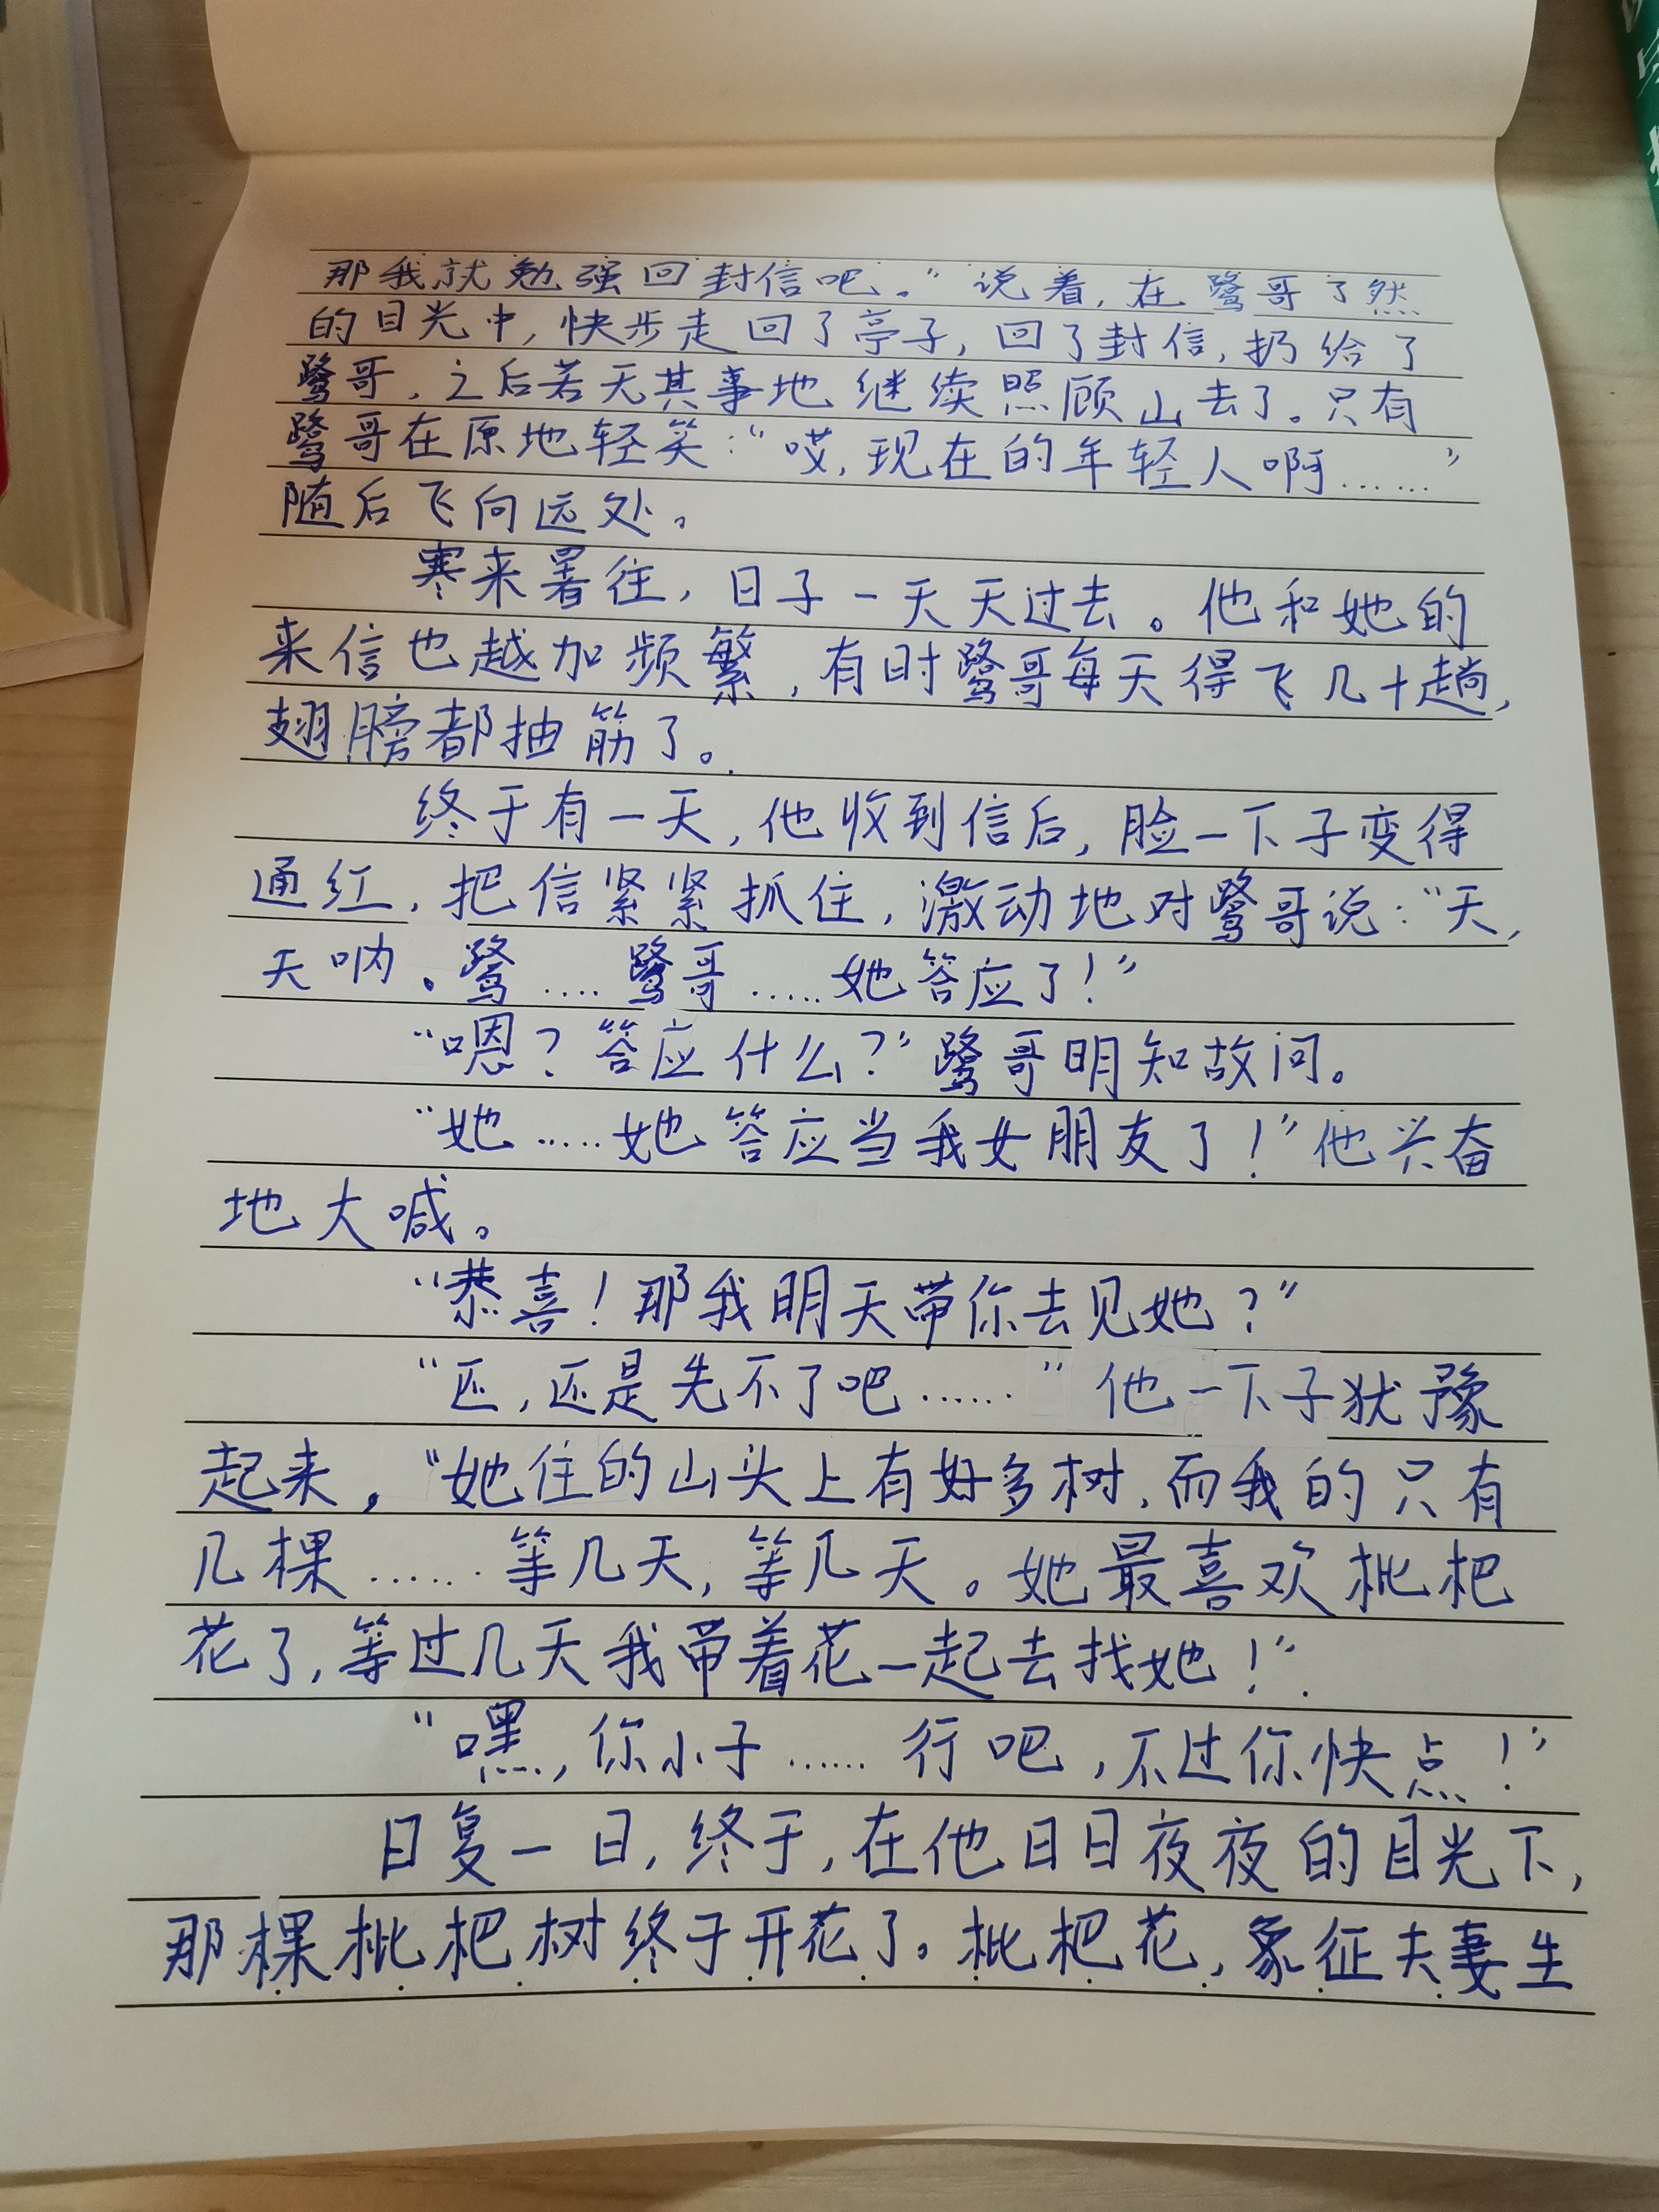 那我就勉强回封信吧。”说着，在鹭哥了然
的目光中，快步走回了亭子，回了封信，扔给了
鹭哥，之后若无其事地继续照顾山去了。只有
鹭哥在原地轻笑：“哎，现在的年轻人啊……”
随后飞向远处。
寒来暑往，日子一天天过去。他和她的
来信也越加频繁，有时鹭哥每天得飞几十趟，
翅膀都抽筋了。
终于有一天，他收到信后，脸一下子变得
通红，把信紧紧抓住，激动地对鹭哥说：“天，
天呐。鹭……鹭哥……她答应了！”
“嗯？答应什么？”鹭哥明知故问。
“她……她答应当我女朋友了！”他兴奋
地大喊。
“恭喜！那我明天带你去见她？”
“还，还是先不了吧……”他一下子犹豫
起来，“她住的山头上有好多树，而我的只有
几棵……等几天，等几天。她最喜欢枇杷
花了，等过几天我带着花一起去找她！”
“嘿，你小子……行吧，不过你快点！”
日复一日，终于，在他日日夜夜的目光下，
那棵枇杷树终于开花了。枇杷花，象征夫妻生